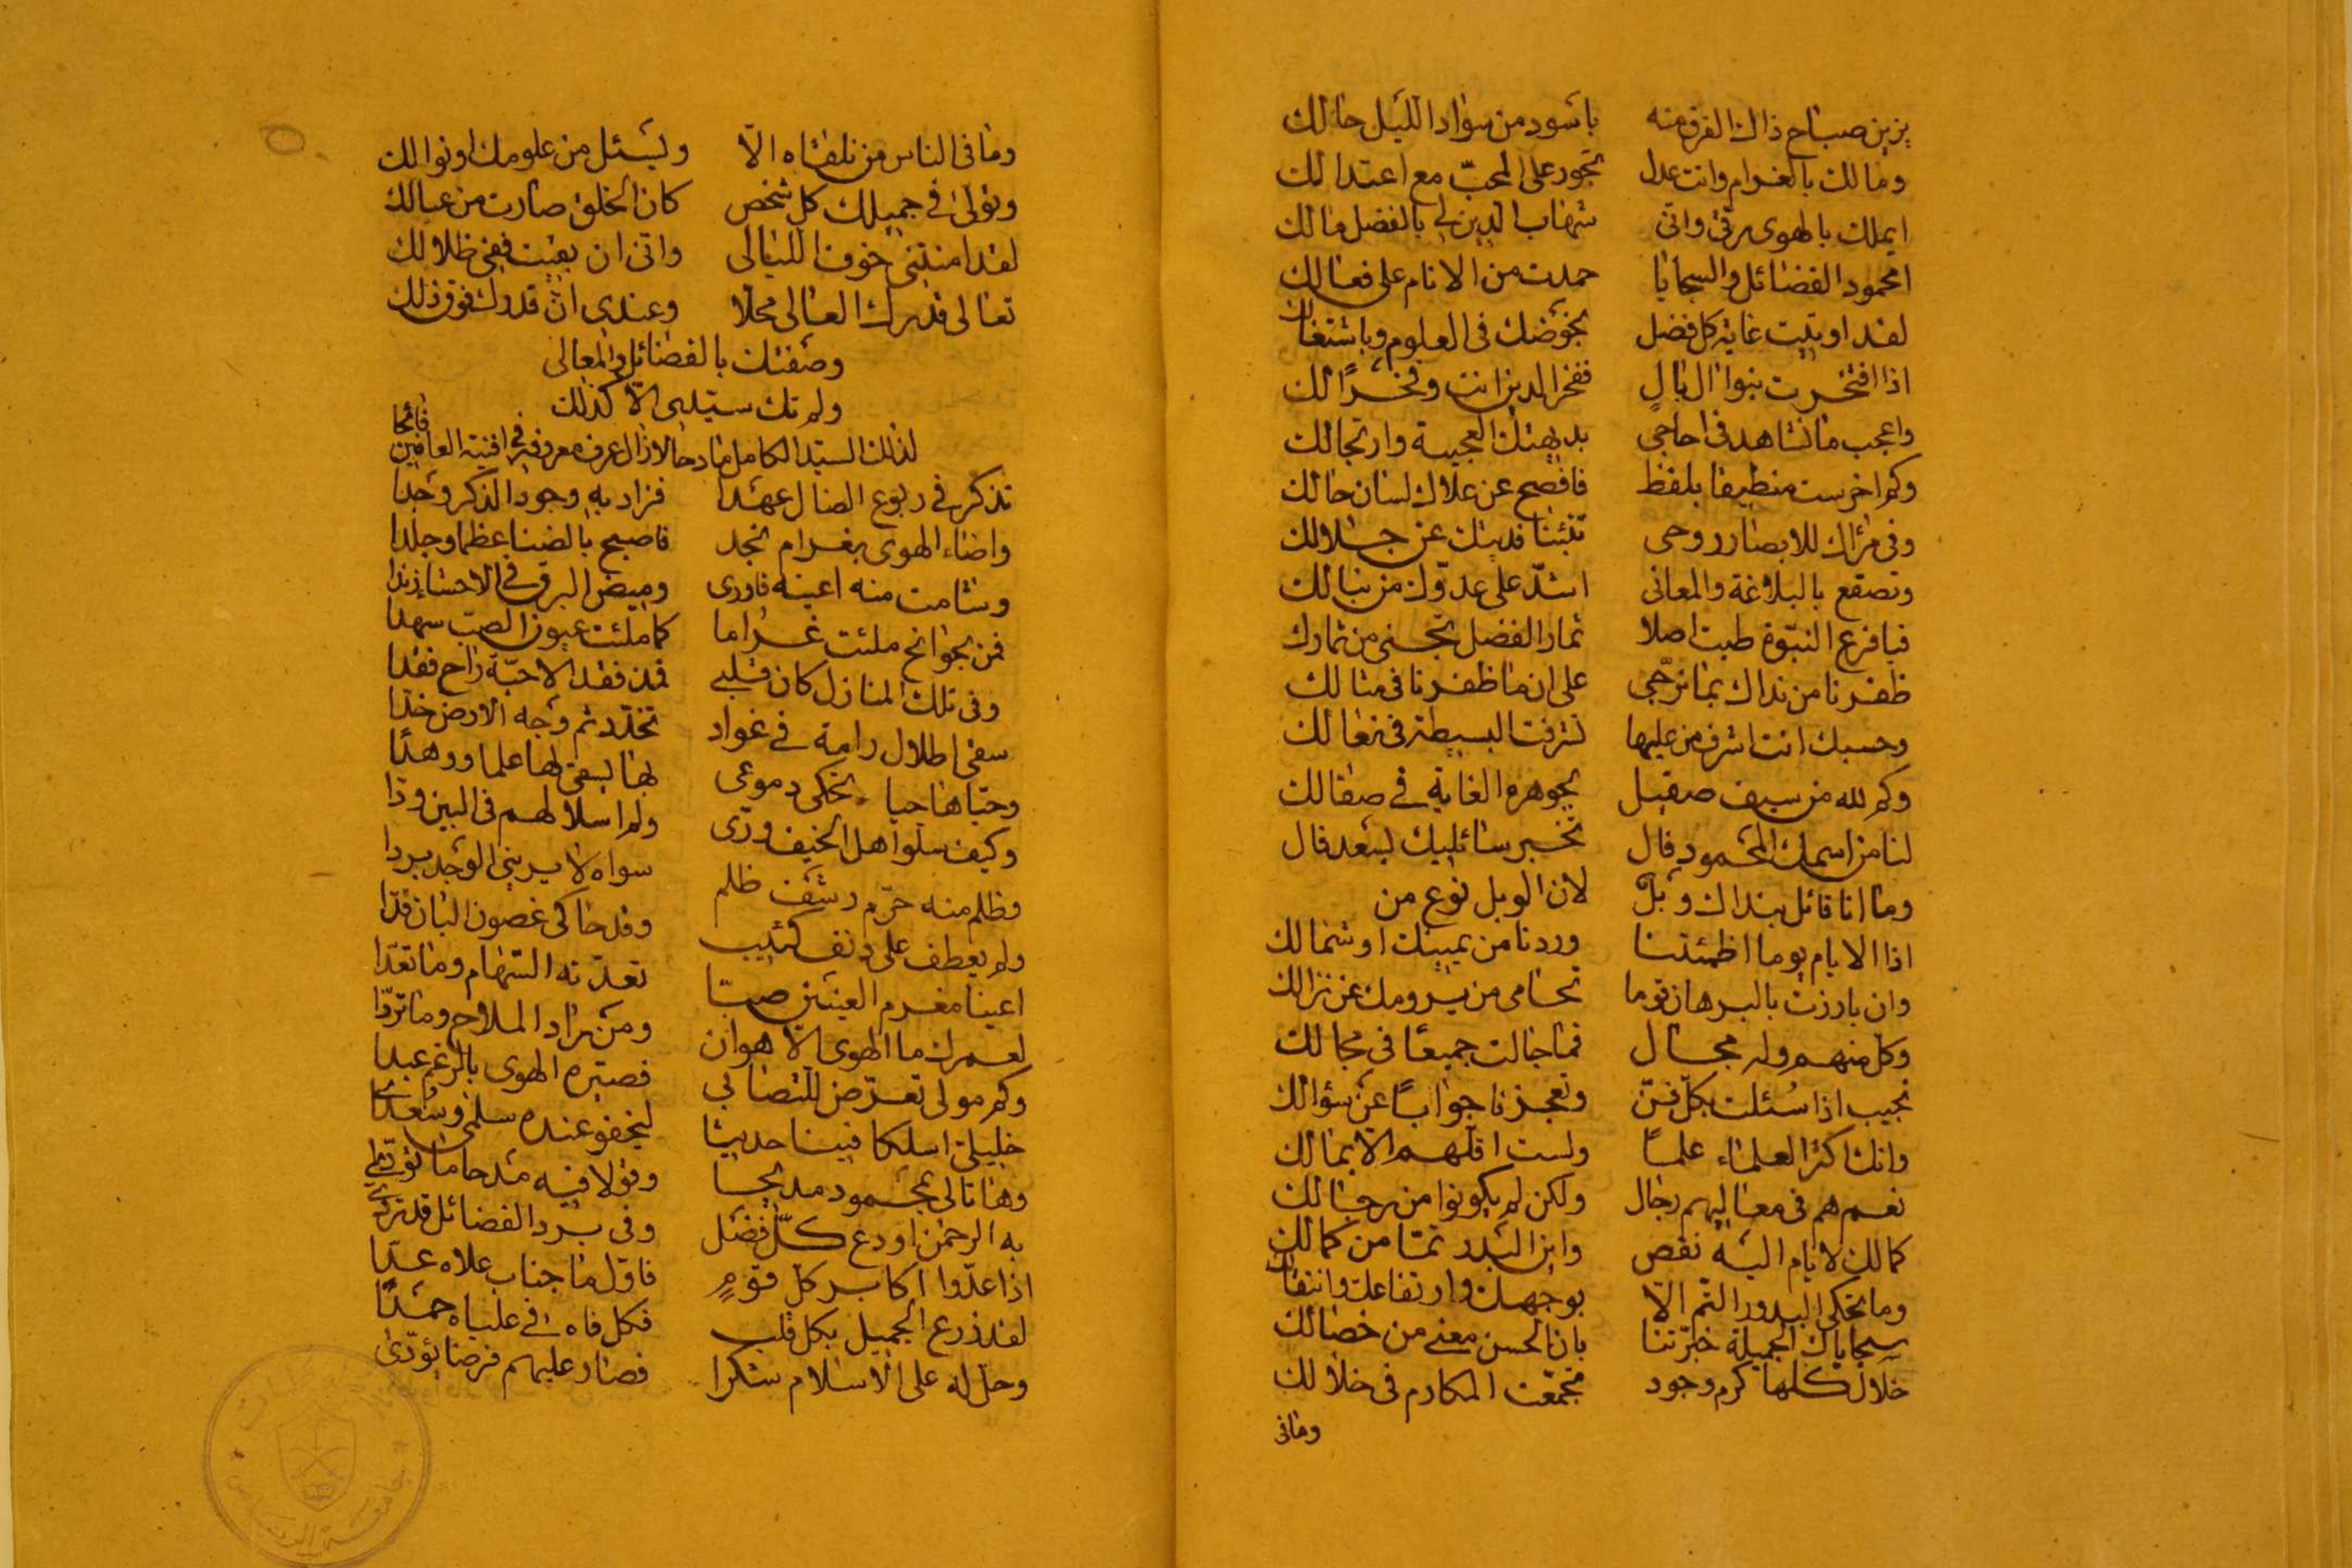 يزين صباح ذاك الفرق منه باسود من سواد الليل حالك
ومالك بالغرام وانت عدل تجور على المحبّ مع اعتدالك
ايملك بالهوى رقى وانى شهاب الدين لى بالفضل مالك
امحمود الفضائل والسجايا حمدت من الانام على فعالك
لقد اوتيت غاية كل فضل بخوضك فى العلوم وباشتغالك
اذا افتخرت بنوا ال بال ففخر الدين انت وفخرًا لك
واعجب ما نشاهد فى احاجى بديهتك العجيبة وارتجالك
وكم اخرست منطيقا بلفظ فافصح عن علاك لسان حالك
وفى مرآك للابصار روحى تنبئنا فديتك عن جلالك
وتصقع بالبلاغة والمعانى اشدّ على عدوّك من نبالك
فيا فرع النبوّة طبت اصلا ثمار الفضل تجنى من ثمارك
ظفرنا من نداك بما نرجّى على ان ما ظفرنا فى مثالك
وحسبك انت اشرف من عليها تشرفت البسيطة فى نعالك
وكم لله من سيف صقيل بجوهره الغاية فى صقالك
لنا من اسمك المحمود فال تخبر سائليك بسعد فال
وما انا قائل بنداك وبل لان الوبل نوع من
اذا الايام يوما اظمئتنا وردنا من يمينك او شمالك
وان بارزت بالبرهان قوما تحامى من يرومك عن نزالك
وكل منهم وله مجال فما جالت جميعًا فى مجالك
تجيب اذا سُئلت بكل فنّ وتعجزنا جوابًا عن سؤالك
وانك اكثر العلماء علمًا ولست اقلهم الا بمالك
نعم هم فى معاليهم رجال ولكن لم يكونوا من رجالك
كمالك لا يام اليه نقص واين البدر تمّا من كمالك
وما تحكى البدور التم الّا بوجهك وارتفاعك وانتقالك
سجاياك الجميلة خبّرتنا بان الحسن معنى من خصالك
خلال كلها كرم وجود تجمعت المكارم فى خلالك
ومافى
وما فى الناس من تلقاه الّا ويسئل من علومك او نوالك
وتولى فى جميلك كل شخص كان الخلق صارت من عيالك
لقد امنتنى خوف الليالى وانى ان بقيت ففى ظلالك
تعالى قدرك العالى محلا وعندى انّ قدرك فوق ذلك
وصفتك بالفضائل والمعالى
ولم تك سيّدى الّا كذلك
لذلك السيد الكامل مادحا لا زال عرف معروفه فى افنية العافين فائحا
تذكر فى ربوع الضال عهدا فزاد به وجود الذكر وجدا
واضناه الهوى بغرام نجد فاصبح بالضنا عظما وجلدا
وشامت منه اعينه فاورى وميض البرق فى الاحشا زندا
فمن بجوانح ملئت غراما كما ملئت عيون الصب سهدا
وفى تلك المنازل كان قلبى فمن فقد الاحبّة راح فقدا
سقى اطلال رامة فى غواد تخدّد ثم وجه الارض خدا
وحيّاها حيا يحكى دموعى بها يسقى لها علما ووهدًا
وكيف سلوا هل الخيف ودّى ولم اسلا لهم فى البين ودا
وظلم منه حرّم رشف ظلم سواه لا يرينى الوجد بردا
ولم يعطف على دنف كئيب وقد حاكى غصون البان قدّا
اعينا مغرم العينين صبّا تعدّته السهام وما تعدّا
لعمرك ما الهوى الّا هوان ومن راد الملاح وما تردّا
وكم مولى تعرّض للتصابى فصيّره الهوى بالرغم عبدا
خليلىّ اسلكا فينا حديثا ليجفو عنده سلمى وسعدى
وهاتا لى بمحمود مديحا وقولا فيه مدحا ما
به الرحمن اودع كلّ فضل وفى برد الفضائل قد تردّى
اذا عدّوا اكابر كل قومٍ فاوّل ما جناب علاه عدّا
لقد زرع الجميل بكل قلب فكل فاه فى علياه حمدًا
وحل له على الاسلام شكرا فصار عليهم فرضا يؤدّى
جامعة الرياض